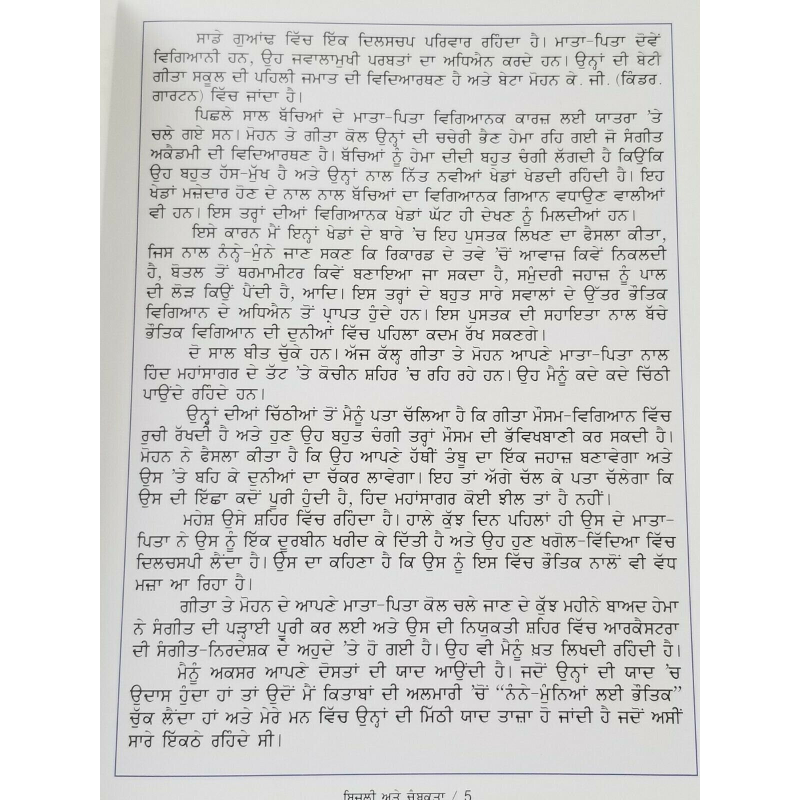 ਸਾਡੇ ਗੁਆਂਢ ਵਿੱਚ ਇੱਕ ਦਿਲਸਚਪ ਪਰਿਵਾਰ ਰਹਿੰਦਾ ਹੈ। ਮਾਤਾ-ਪਿਤਾ ਦੋਵੇਂ
ਵਿਗਿਆਨੀ ਹਨ, ਉਹ ਜਵਾਲਾਮੁਖੀ ਪਰਬਤਾਂ ਦਾ ਅਧਿਐਨ ਕਰਦੇ ਹਨ। ਉਨ੍ਹਾਂ ਦੀ ਬੇਟੀ
ਗੀਤਾ ਸਕੂਲ ਦੀ ਪਹਿਲੀ ਜਮਾਤ ਦੀ ਵਿਦਿਆਰਥਣ ਹੈ ਅਤੇ ਬੇਟਾ ਮੋਹਨ ਕੇ. ਜੀ. (ਕਿੰਡਰ.
ਗਾਰਟਨ) ਵਿੱਚ ਜਾਂਦਾ ਹੈ।
ਪਿਛਲੇ ਸਾਲ ਬੱਚਿਆਂ ਦੇ ਮਾਤਾ-ਪਿਤਾ ਵਿਗਿਆਨਕ ਕਾਰਜ਼ ਲਈ ਯਾਤਰਾ 'ਤੇ
ਚਲੇ ਗਏ ਸਨ। ਮੋਹਨ ਤੇ ਗੀਤਾ ਕੋਲ ਉਨ੍ਹਾਂ ਦੀ ਚਚੇਰੀ ਭੈਣ ਹੇਮਾ ਰਹਿ ਗਈ ਜੋ ਸੰਗੀਤ
ਅਕੈਡਮੀ ਦੀ ਵਿਦਿਆਰਥਣ ਹੈ। ਬੱਚਿਆਂ ਨੂੰ ਹੇਮਾ ਦੀਦੀ ਬਹੁਤ ਚੰਗੀ ਲੱਗਦੀ ਹੈ ਕਿਉਂਕਿ
ਉਹ ਬਹੁਤ ਹੱਸ-ਮੁੱਖ ਹੈ ਅਤੇ ਉਨ੍ਹਾਂ ਨਾਲ ਨਿੱਤ ਨਵੀਆਂ ਖੇਡਾਂ ਖੇਡਦੀ ਰਹਿੰਦੀ ਹੈ। ਇਹ
ਖੇਡਾਂ ਮਜ਼ੇਦਾਰ ਹੋਣ ਦੇ ਨਾਲ ਨਾਲ ਬੱਚਿਆਂ ਦਾ ਵਿਗਿਆਨਕ ਗਿਆਨ ਵਧਾਉਣ ਵਾਲੀਆਂ
ਵੀ ਹਨ। ਇਸ ਤਰ੍ਹਾਂ ਦੀਆਂ ਵਿਗਿਆਨਕ ਖੇਡਾਂ ਘੱਟ ਹੀ ਦੇਖਣ ਨੂੰ ਮਿਲਦੀਆਂ ਹਨ।
ਇਸੇ ਕਾਰਨ ਮੈਂ ਇਨ੍ਹਾਂ ਖੇਡਾਂ ਦੇ ਬਾਰੇ 'ਚ ਇਹ ਪੁਸਤਕ ਲਿਖਣ ਦਾ ਫੈਸਲਾ ਕੀਤਾ,
ਜਿਸ ਨਾਲ ਨੰਨ੍ਹੇ-ਮੁੰਨੇ ਜਾਣ ਸਕਣ ਕਿ ਰਿਕਾਰਡ ਦੇ ਤਵੇ 'ਚੋਂ ਆਵਾਜ਼ ਕਿਵੇਂ ਨਿਕਲਦੀ
ਹੈ, ਬੋਤਲ ਤੋਂ ਥਰਮਾਮੀਟਰ ਕਿਵੇਂ ਬਣਾਇਆ ਜਾ ਸਕਦਾ ਹੈ, ਸਮੁੰਦਰੀ ਜਹਾਜ਼ ਨੂੰ ਪਾਲ
ਦੀ ਲੋੜ ਕਿਉਂ ਪੈਂਦੀ ਹੈ, ਆਦਿ। ਇਸ ਤਰ੍ਹਾਂ ਦੇ ਬਹੁਤ ਸਾਰੇ ਸਵਾਲਾਂ ਦੇ ਉੱਤਰ ਭੌਤਿਕ
ਵਿਗਿਆਨ ਦੇ ਅਧਿਐਨ ਤੋਂ ਪ੍ਰਾਪਤ ਹੁੰਦੇ ਹਨ। ਇਸ ਪੁਸਤਕ ਦੀ ਸਹਾਇਤਾ ਨਾਲ ਬੱਚੇ
ਭੌਤਿਕ ਵਿਗਿਆਨ ਦੀ ਦੁਨੀਆਂ ਵਿੱਚ ਪਹਿਲਾ ਕਦਮ ਰੱਖ ਸਕਣਗੇ।
ਦੋ ਸਾਲ ਬੀਤ ਚੁੱਕੇ ਹਨ। ਅੱਜ ਕੱਲ੍ਹ ਗੀਤਾ ਤੇ ਮੋਹਨ ਆਪਣੇ ਮਾਤਾ-ਪਿਤਾ ਨਾਲ
ਹਿੰਦ ਮਹਾਂਸਾਗਰ ਦੇ ਤੱਟ 'ਤੇ ਕੋਚੀਨ ਸ਼ਹਿਰ 'ਚ ਰਹਿ ਰਹੇ ਹਨ। ਉਹ ਮੈਨੂੰ ਕਦੇ ਕਦੇ ਚਿੱਠੀ
ਪਾਉਂਦੇ ਰਹਿੰਦੇ ਹਨ।
ਉਨ੍ਹਾਂ ਦੀਆਂ ਚਿੱਠੀਆਂ ਤੋਂ ਮੈਨੂੰ ਪਤਾ ਚੱਲਿਆ ਹੈ ਕਿ ਗੀਤਾ ਮੌਸਮ-ਵਿਗਿਆਨ ਵਿੱਚ
ਰੁਚੀ ਰੱਖਦੀ ਹੈ ਅਤੇ ਹੁਣ ਉਹ ਬਹੁਤ ਚੰਗੀ ਤਰ੍ਹਾਂ ਮੌਸਮ ਦੀ ਭੱਵਿਖਬਾਣੀ ਕਰ ਸਕਦੀ ਹੈ।
ਮੋਹਨ ਨੇ ਫੈਸਲਾ ਕੀਤਾ ਹੈ ਕਿ ਉਹ ਆਪਣੇ ਹੱਥੀਂ ਤੰਬੂ ਦਾ ਇੱਕ ਜਹਾਜ਼ ਬਣਾਵੇਗਾ ਅਤੇ
ਉਸ 'ਤੇ ਬਹਿ ਕੇ ਦੁਨੀਆਂ ਦਾ ਚੱਕਰ ਲਾਵੇਗਾ। ਇਹ ਤਾਂ ਅੱਗੇ ਚੱਲ ਕੇ ਪਤਾ ਚੱਲੇਗਾ ਕਿ
ਉਸ ਦੀ ਇੱਛਾ ਕਦੋਂ ਪੂਰੀ ਹੁੰਦੀ ਹੈ, ਹਿੰਦ ਮਹਾਂਸਾਗਰ ਕੋਈ ਝੀਲ ਤਾਂ ਹੈ ਨਹੀਂ।
ਮਹੇਸ਼ ਉਸੇ ਸ਼ਹਿਰ ਵਿੱਚ ਰਹਿੰਦਾ ਹੈ। ਹਾਲੇ ਕੁੱਝ ਦਿਨ ਪਹਿਲਾਂ ਹੀ ਉਸ ਦੇ ਮਾਤਾ-
ਪਿਤਾ ਨੇ ਉਸ ਨੂੰ ਇੱਕ ਦੂਰਬੀਨ ਖਰੀਦ ਕੇ ਦਿੱਤੀ ਹੈ ਅਤੇ ਉਹ ਹੁਣ ਖਗੋਲ-ਵਿੱਦਿਆ ਵਿੱਚ
ਦਿਲਚਸਪੀ ਲੈਂਦਾ ਹੈ। ਉਸ ਦਾ ਕਹਿਣਾ ਹੈ ਕਿ ਉਸ ਨੂੰ ਇਸ ਵਿੱਚ ਭੌਤਿਕ ਨਾਲੋਂ ਵੀ ਵੱਧ
ਮਜ਼ਾ ਆ ਰਿਹਾ ਹੈ।
ਗੀਤਾ ਤੇ ਮੋਹਨ ਦੇ ਆਪਣੇ ਮਾਤਾ-ਪਿਤਾ ਕੋਲ ਚਲੇ ਜਾਣ ਦੇ ਕੁੱਝ ਮਹੀਨੇ ਬਾਅਦ ਹੇਮਾ
ਨੇ ਸੰਗੀਤ ਦੀ ਪੜ੍ਹਾਈ ਪੂਰੀ ਕਰ ਲਈ ਅਤੇ ਉਸ ਦੀ ਨਿਯੁਕਤੀ ਸ਼ਹਿਰ ਵਿੱਚ ਆਰਕੈਸਟਰਾ
ਦੀ ਸੰਗੀਤ-ਨਿਰਦੇਸ਼ਕ ਦੇ ਅਹੁਦੇ 'ਤੇ ਹੋ ਗਈ ਹੈ। ਉਹ ਵੀ ਮੈਨੂੰ ਖ਼ਤ ਲਿਖਦੀ ਰਹਿੰਦੀ ਹੈ।
ਮੈਨੂੰ ਅਕਸਰ ਆਪਣੇ ਦੋਸਤਾਂ ਦੀ ਯਾਦ ਆਉਂਦੀ ਹੈ। ਜਦੋਂ ਉਨ੍ਹਾਂ ਦੀ ਯਾਦ 'ਚ
ਉਦਾਸ ਹੁੰਦਾ ਹਾਂ ਤਾਂ ਉਦੋਂ ਮੈਂ ਕਿਤਾਬਾਂ ਦੀ ਅਲਮਾਰੀ 'ਚੋਂ "ਨੰਨੇ-ਮੁੰਨਿਆਂ ਲਈ ਭੌਤਿਕ"
ਚੁੱਕ ਲੈਂਦਾ ਹਾਂ ਅਤੇ ਮੇਰੇ ਮਨ ਵਿੱਚ ਉਨ੍ਹਾਂ ਦੀ ਮਿੱਠੀ ਯਾਦ ਤਾਜ਼ਾ ਹੋ ਜਾਂਦੀ ਹੈ ਜਦੋਂ ਅਸੀਂ
ਸਾਰੇ ਇੱਕਠੇ ਰਹਿੰਦੇ ਸੀ।
ਬਿਜਲੀ ਅਤੇ ਚੁੰਬਕਤਾ / 5